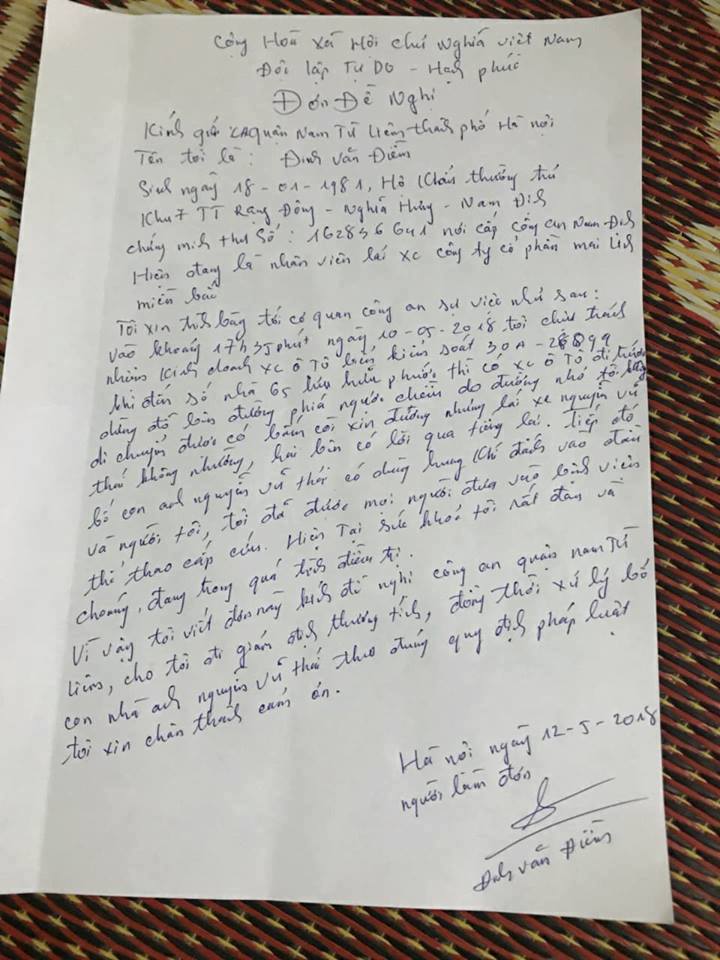 Cộng Hoà xã Hội chủ Nghĩa việt Nam
Độc lập Tự Do - Hạnh phúc
Đơn Đề Nghị
Kính gửi CA quận Nam Từ Liêm thành phố Hà nội
Tên tôi là: Đinh văn Điềm
Sinh ngày 18-01-1981, Hộ khẩu thường trú
Khu 7 TT Rạng Đông - Nghĩa Hưng - Nam Định
chứng minh thư số: 162836641 nơi cấp công an Nam Định
Hiện đang là nhân viên lái xe công ty cổ phần mai Linh
miền bắc
Tôi xin trình bày tới cơ quan công an sự việc như sau:
vào khoảng 17h35 phút ngày 10-05-2018 tôi chịu trách
nhiệm kinh doanh xe ô tô biển kiểm soát 30A-
khi đến số nhà 65 lưu hữu phước thì có xe ô tô đi trước
dừng đỗ bên đường phía ngược chiều do đường nhỏ tôi không
di chuyển được có bấm còi xin đường nhưng lái xe nguyễn vũ
thái không nhường, hai bên có lời qua tiếng lại. tiếp đó
bố con anh nguyễn vũ thái có dùng hung khí đánh vào đầu
và người tôi, tôi đã được mọi người đưa vào bệnh viện
thể thao cấp cứu. Hiện Tại sức khoẻ tôi rất đau và
choáng, đang trong quá trình điều trị.
Vì vậy tôi viết đơn này kính đề nghị công an quận nam Từ
Liêm, cho tôi đi giám định thương tích, đồng thời xử lý bố
con nhà anh nguyễn vũ thái theo đúng quy định pháp luật
tôi xin chân thành cám ơn.
Hà nội ngày 12-5-2018
người làm đơn
Đinh văn Điềm